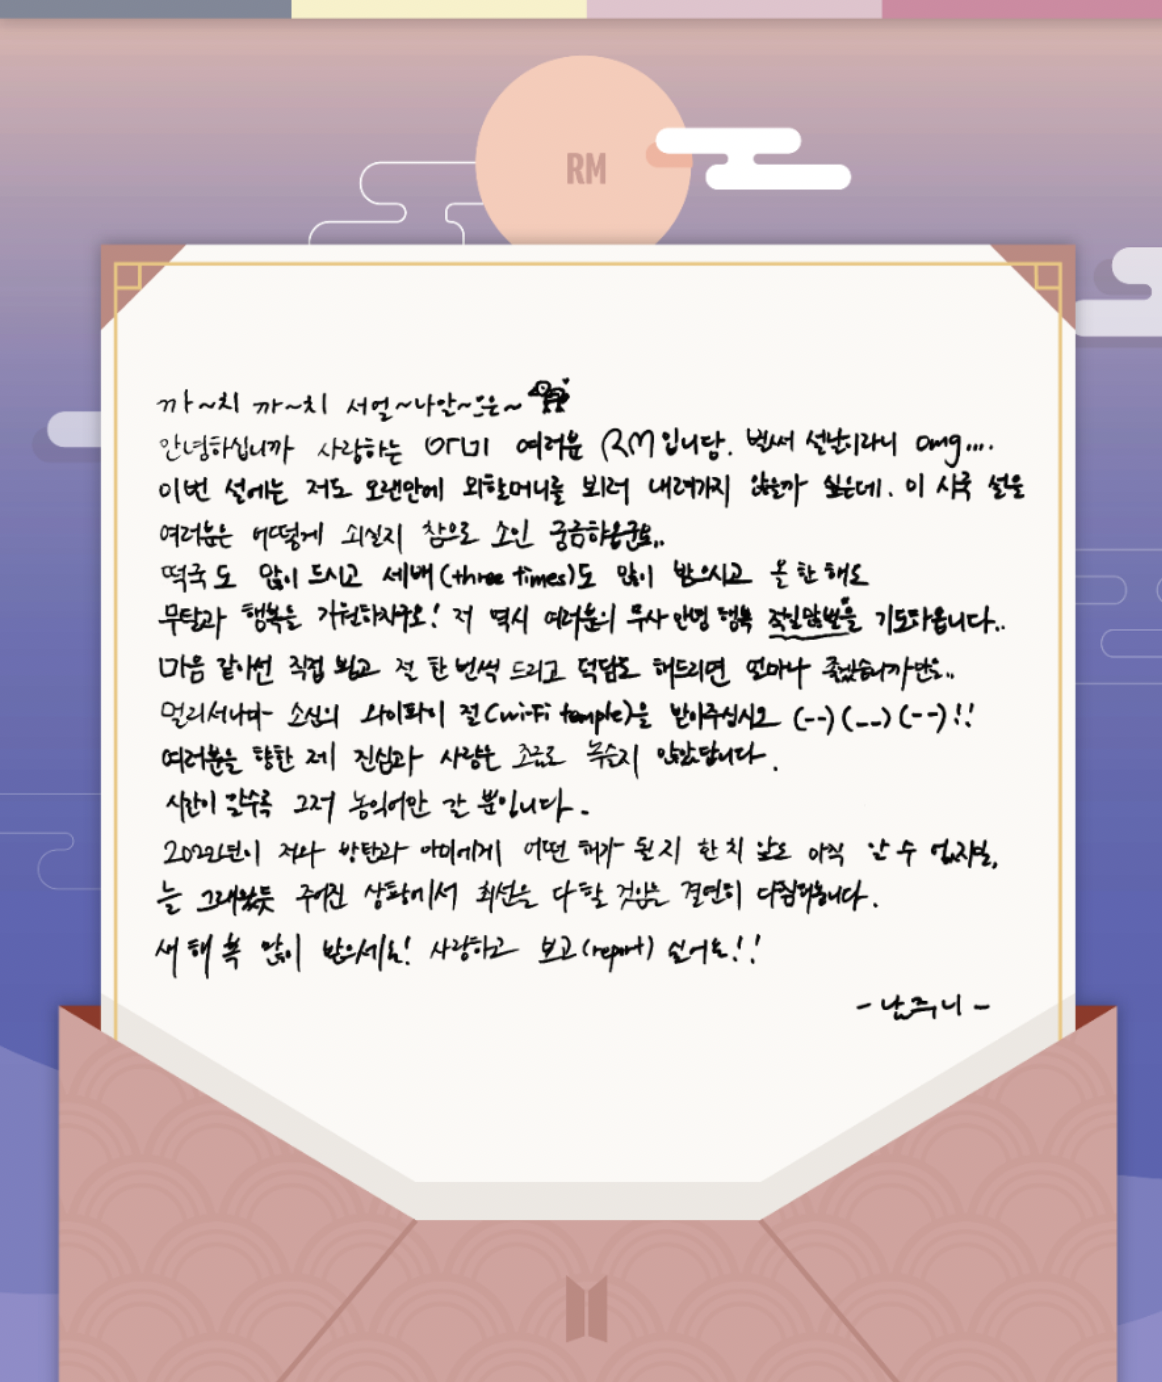 RM
까~치 까~치 서얼~나알~으은~
안녕하십니까 사랑하는 아미 여러분 RM입니담. 벌써 설날이라니 omg....
이번 설에는 저도 오랜만에 외할머니를 뵈러 내려가지 않을까 싶은데. 이 시국 설을
여러분은 어떻게 쇠실지 참으로 소인 궁금하옵군요..
떡국도 많이 드시고 세배(three times)도 많이 받으시고 올 한 해도
무탈과 행복을 기원하자구요! 저 역시 여러분의 무사 안녕 행복 을 기도하옵니다..
마음 같아선 직접 뵙고 절 한 번씩 드리고 덕담도 해드리면 얼마나 좋겠습니까만은..
멀리서나마 소신의 와이파이 절(wi-fi temple)을 받아주십시오 (--)(__)(--)!!
여러분을 향한 제 진심과 사랑은 조금도 녹슬지 않았답니다.
시간이 갈수록 그저 농익어만 갈 뿐입니다.
2022년이 저와 방탄과 아미에게 어떤 해가 될지 한 치 앞도 아직 알 수 없지만,
늘 그래왔듯 주어진 상황에서 최선을 다할 것임은 결연히 다짐해봅니다.
새해 복 많이 받으세요! 사랑하고 보고(report) 싶어요!!
- 남주니 -